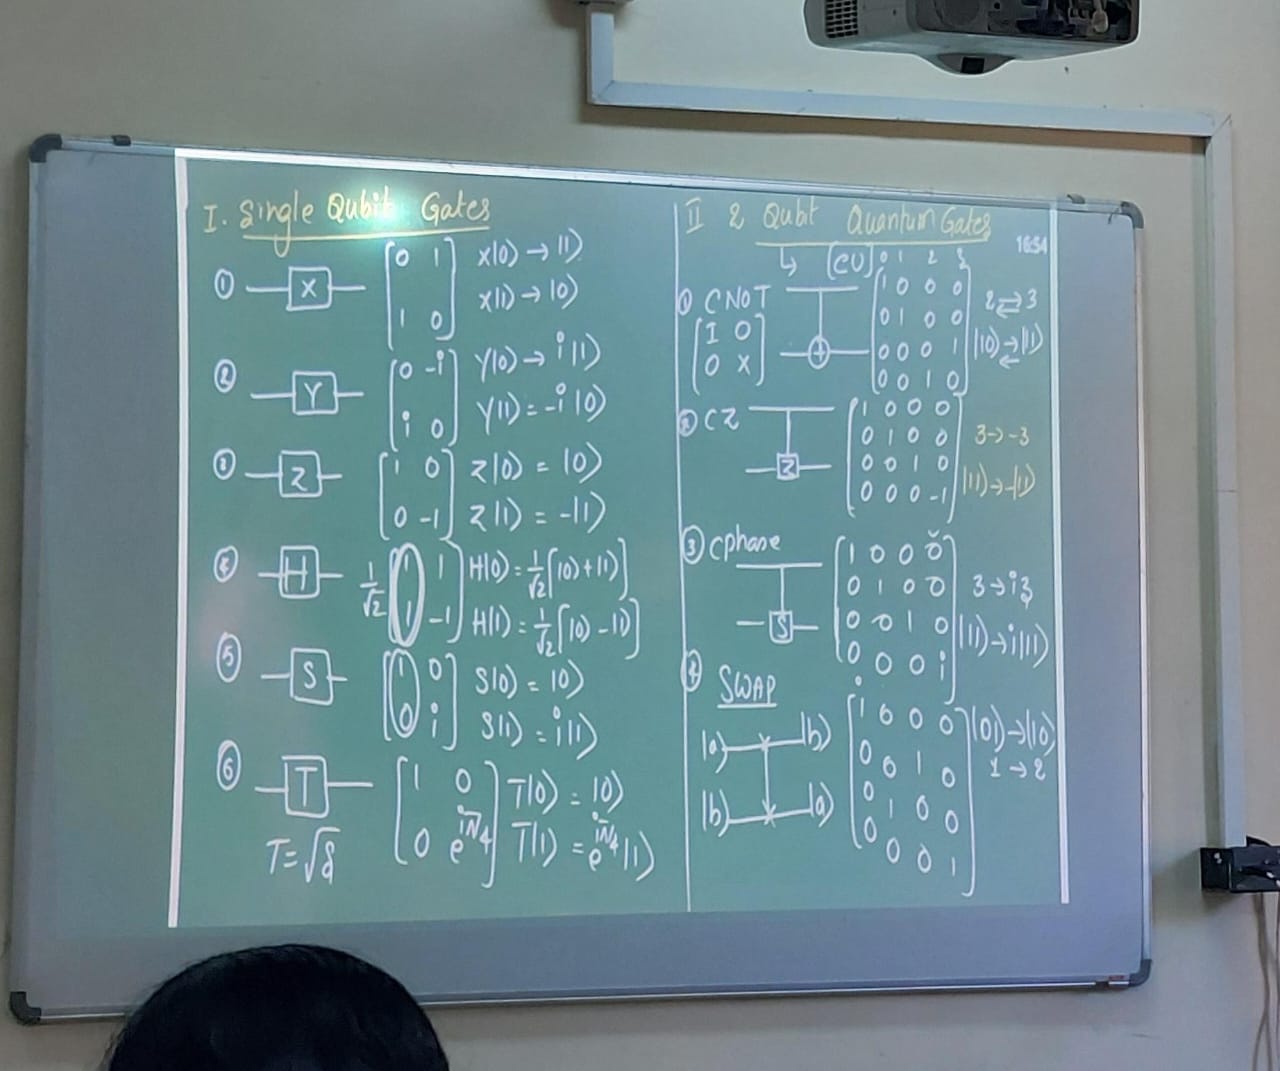 I. Single Qubit Gates
① X [0 1
1 0] X|0⟩ → |1⟩
X|1⟩ → |0⟩
② Y [0 -i
i 0] Y|0⟩ → i|1⟩
Y|1⟩ = -i|0⟩
③ Z [1 0
0 -1] Z|0⟩ = |0⟩
Z|1⟩ = -|1⟩
④ H 1/√2 [1 1
1 -1] H|0⟩ = 1/√2 [|0⟩+|1⟩]
H|1⟩ = 1/√2 [|0⟩-|1⟩]
⑤ S [1 0
0 i] S|0⟩ = |0⟩
S|1⟩ = i|1⟩
⑥ T [1 0
0 e^iπ/4] T|0⟩ = |0⟩
T|1⟩ = e^iπ/4 |1⟩
T=√S
II 2 Qubit Quantum Gates
16:54
↳ [CU] 0 1 2 3
① CNOT
[I 0
0 X]
[1 0 0 0
0 1 0 0
0 0 0 1
0 0 1 0]
2 ⇄ 3
|10⟩ ⇄ |11⟩
② CZ
Z
[1 0 0 0
0 1 0 0
0 0 1 0
0 0 0 -1]
3 → -3
|11⟩ → -|11⟩
③ Cphase
S
[1 0 0 0
0 1 0 0
0 0 1 0
0 0 0 i]
3 → i3
|11⟩ → i|11⟩
④ SWAP
|a⟩ |b⟩
|b⟩ |a⟩
[1 0 0 0
0 0 1 0
0 1 0 0
0 0 0 1]
|01⟩ → |10⟩
1 → 2